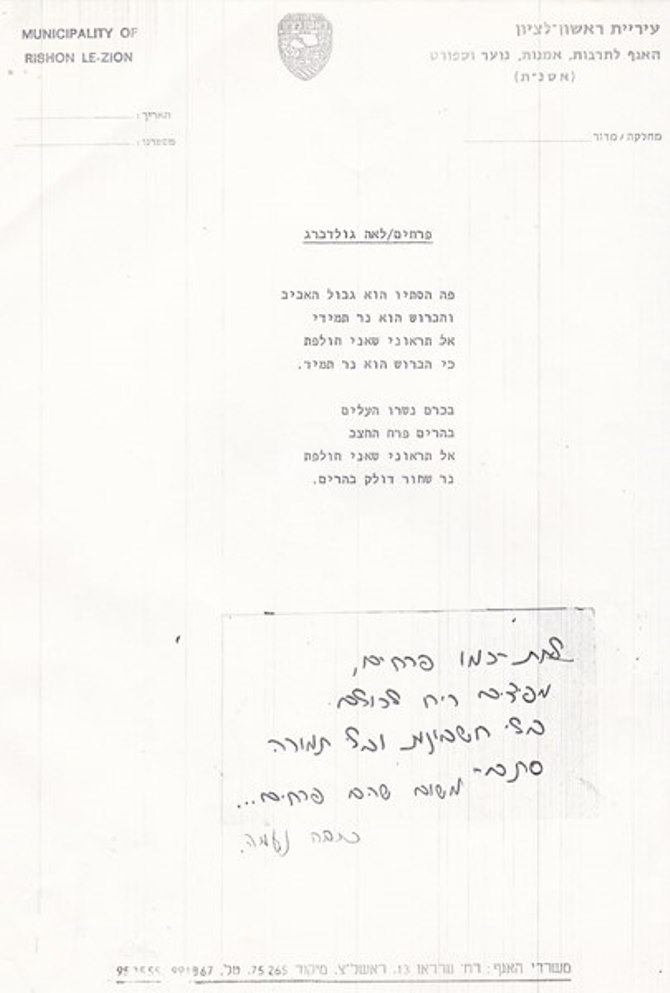 MUNICIPALITY OF
RISHON LE-ZION
עיריית ראשון־לציון
האגף לתרבות, אמנות, נוער וספורט
(אסנ״ת)
תאריך:
מספרנו:
מחלקה/מדור
פרחים/לאה גולדברג
פה הסתיו הוא גבול האביב
והברוש הוא נר תמידי
אל תראוני שאני חולפת
כי הברוש הוא נר תמיד.
בכרם נשרו העלים
בהרים פרח החצב
אל תראוני שאני חולפת
נר שחור דולק בהרים.
לתת -כמו פרחים,
מפיצים ריח לכולם
בלי חשבונות ובלי תמורה
סתם- משום שהם פרחים...
כתבה נעמה.
משרדי האגף: רח׳ 13, ראשל״צ. מיקוד 75265. טל.